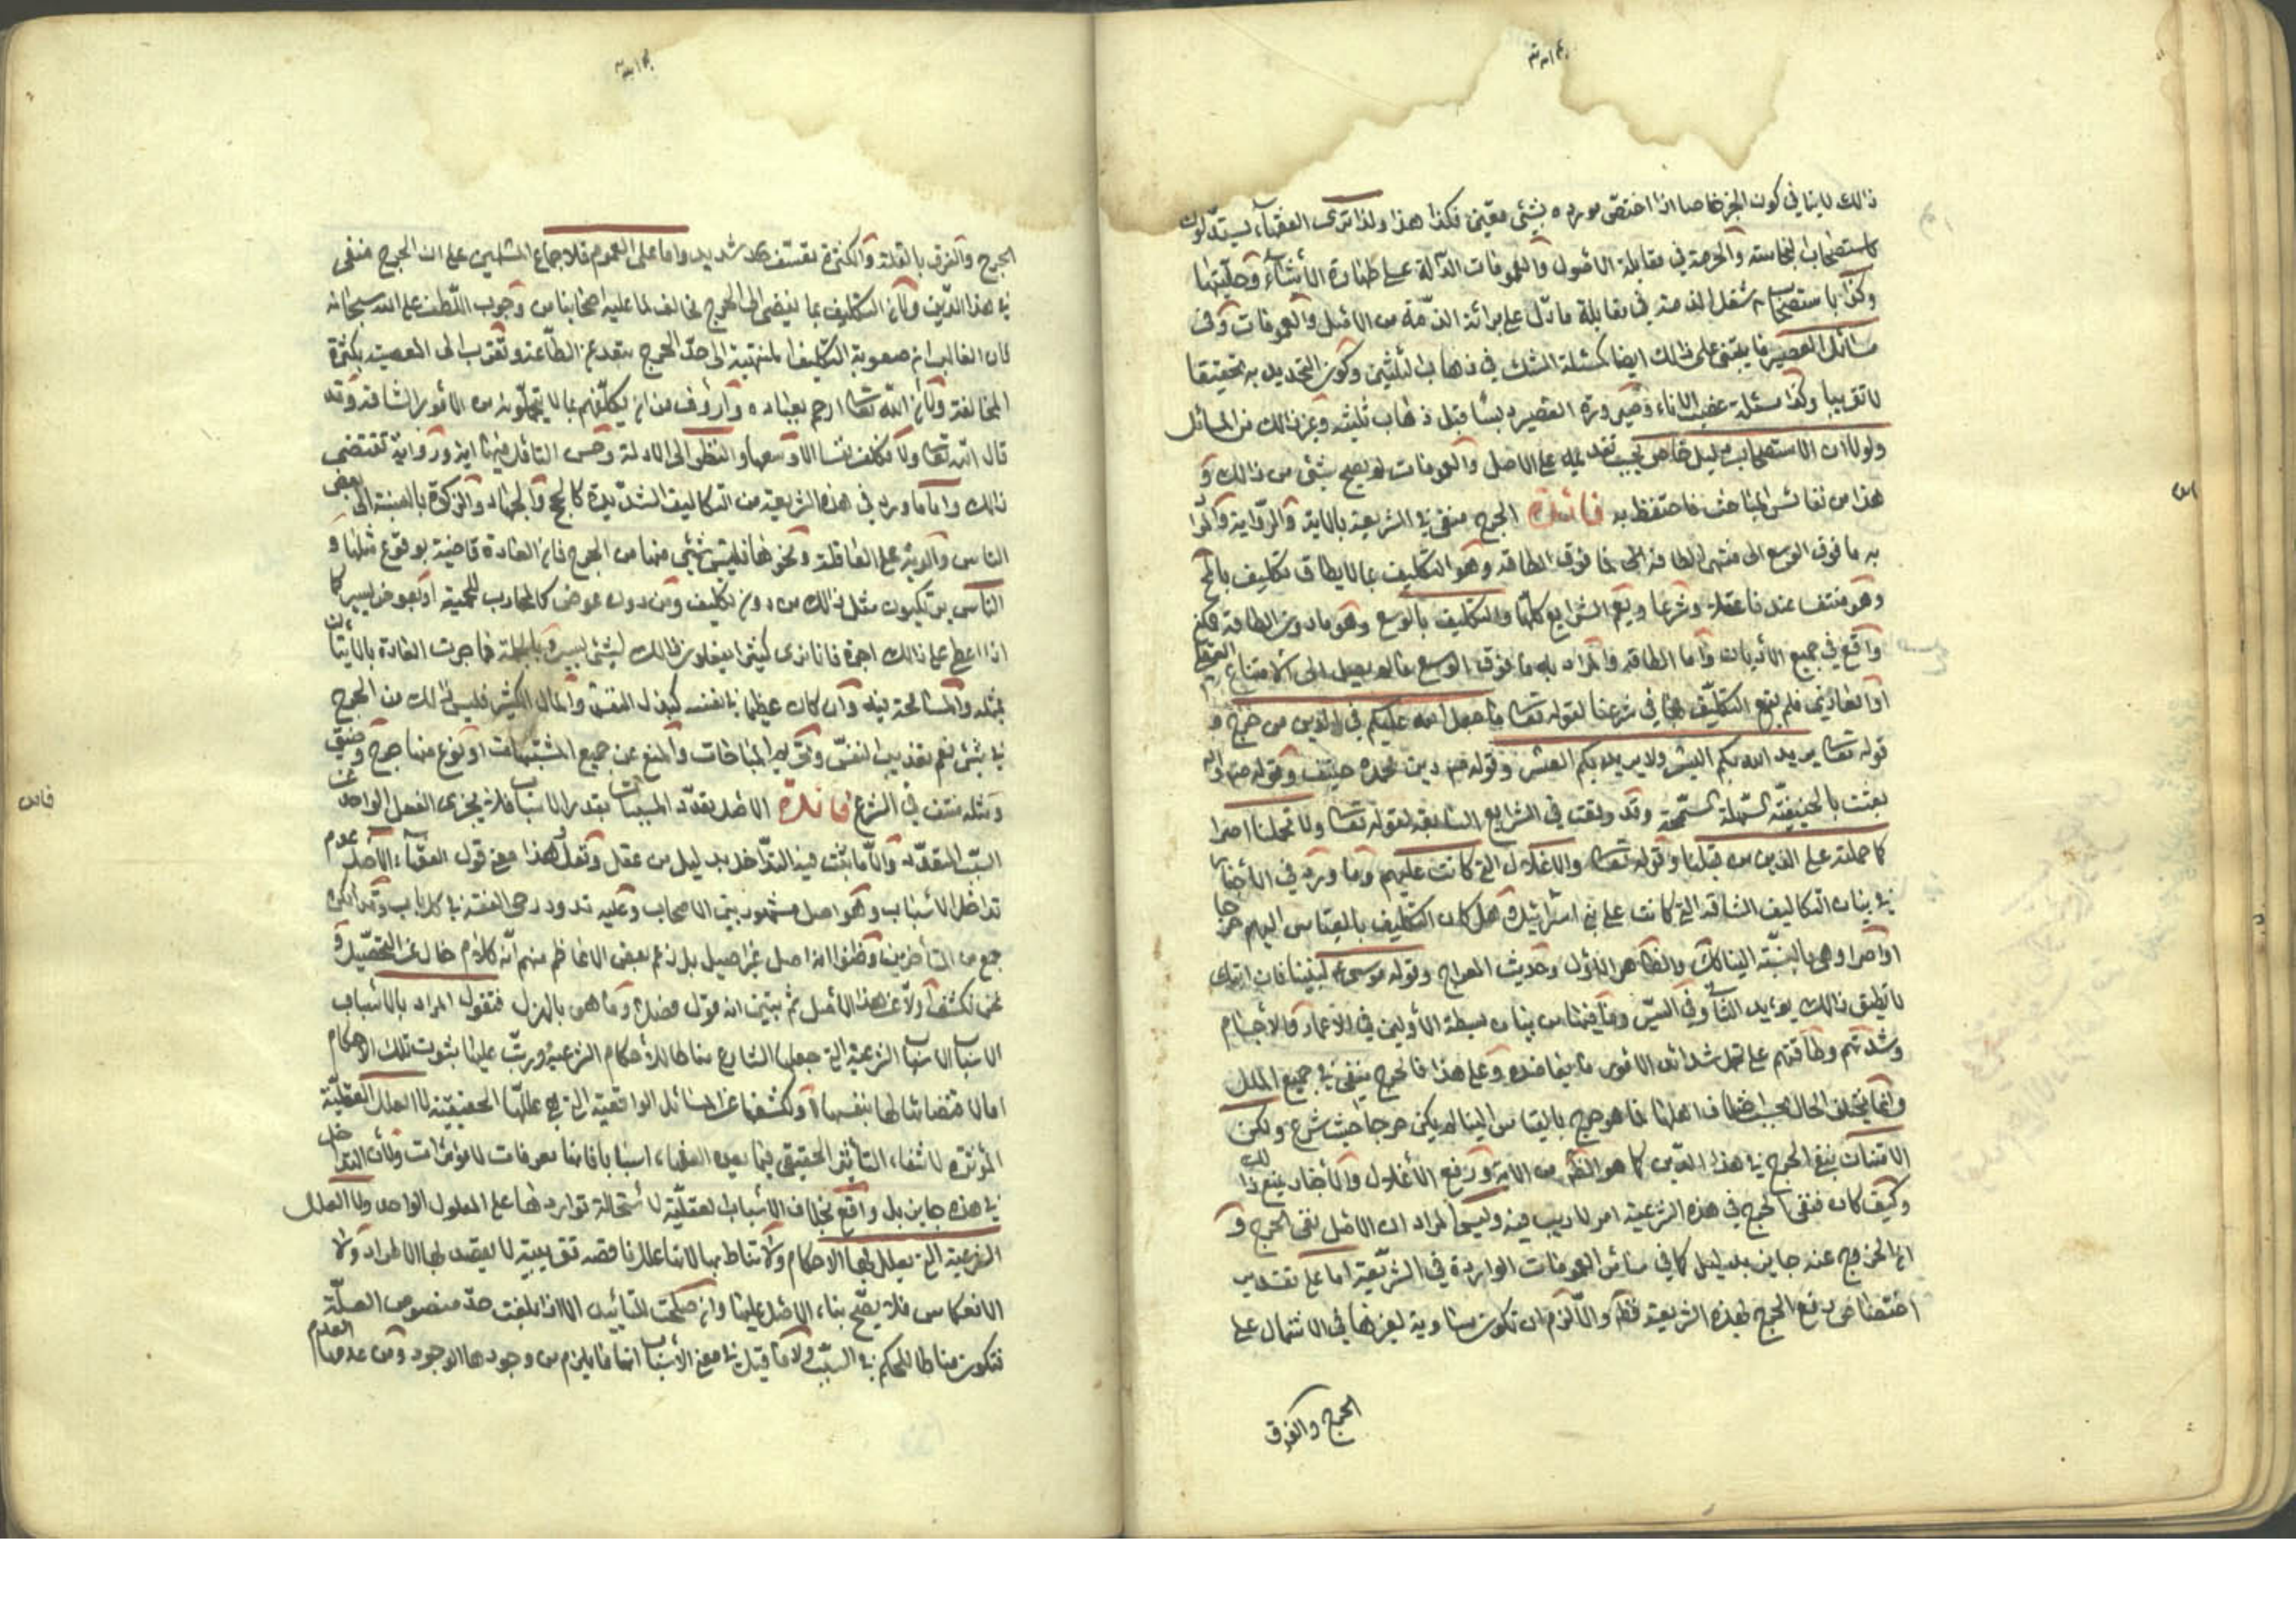 ذالك لا ينافي كون الجزء خاصا اذا اختصّ مورده بشئى معيّن فكذا هذا ولذا ترى الفقهاء يستدلون
باستصحاب النجاسة والحرمة في مقابلة الاصول والعمومات الدالة على طهارة الأشياء وحليتها
وكذا باستصحاب شغل الذمة في مقابلة ما دلّ على برائة الذمّة من الاصل والعمومات وفى
مسائل العصير ما يبتنى على ذالك ايضا كمسئلة الشك في ذهاب الثلثين وكون التحديد به تحقيقا
لا تقريبا وكذا مسئلة خضب الاناء وصيرورة العصير دبسا قبل ذهاب ثلثيه وغير ذالك من المسائل
ولولا ان الاستصحاب دليل خاص يجب تقديمه على الاصل والعمومات لم يصح شئى من ذالك و
هذا من نفائس المباحث فاحتفظ به فائدة الحرج منفى في الشريعة بالاية والرواية والمراد
به ما فوق الوسع الى منتهى الطاقة لا ما فوق الطاقة وهو التكليف بما لا يطاق تكليف بالمح
وهو منتف عندنا عقلا وشرعا ويعم الشرايع كلّها والتكليف بالوسع وهو ما دون الطاقة ممكن
واقع في جميع الأديان واما الطاقة والمراد به ما فوق الوسع ما لم يصل الى الامتناع العقلى
او العادي فلم يقع التكليف بها في شرعنا لقوله تعالى ما جعل الله عليكم في الدين من حرج و
قوله تعالى يريد الله بكم اليسر ولا يريد بكم العسر وقوله ص دين محمد ص حنيف وقوله ص
بعثت بالحنيفيّة السهلة السّمحة وقد وقعت في الشرايع السابقة لقوله تعالى ولا تحمل علينا اصرا
كما حملته على الذين من قبلنا وقوله تعالى والاغلال التى كانت عليهم وما ورد في الأخبار
في بيان التكاليف الشاقة التى كانت على بنى اسرائيل وهل كان التكليف بالقياس اليهم حرجا
او اصرا وهى بالنسبة الينا كك والظاهر الاول وحديث المعراج وقوله موسى ع لنبينا فان امتك
لا تطيق ذالك يؤيد الثانى وفي السير وما فيها من بيان بسطة الأولين في الاعمار والاجسام
وشدتهم وطاقتهم على تحمل شدائد الامور ما يعاضده وعلى هذا فالحرج منفى في جميع الملل
وانما يختلف الحال بحسب اختلاف اهلها فما هو حرج بالقياس الينا لم يكن حرجا حيث شرع ولكن
الامتنان بنفى الحرج في هذا الدين كما هو الظ من الاية ورفع الأغلال والاخبار يمنع ذالك
وكيف كان فنفى الحرج في هذه الشريعة امر لا ريب فيه وليس المراد ان الاصل نفى الحرج و
ان الخروج عنه جايز بدليل كما في سائر العمومات الواردة في الشريعة اما على تقدير
اختصاص رفع الحرج بهذه الشريعة فظ والا لزم ان تكون مساوية لغيرها في الاشتمال على
الحرج والفرق
الحرج والفرق بالقلة والكثرة تعسّف شديد واما على العموم فلاجماع المسلمين على ان الحرج منفى
في هذا الدين ولأن التكليف بما يفضى الى الحرج مخالف لما عليه اصحابنا من وجوب اللطف على الله سبحانه
فان الغالب ان صعوبة التكليف المنتهية الى حدّ الحرج تبعد عن الطاعة وتقرب الى المعصية بكثرة
المخالفة ولأن الله تعالى ارحم بعباده وارؤف من ان يكلّفهم بما لا يتحملونه من الأمور الشاقة وقد
قال الله تعالى ولا نكلف نفسا الا وسعها والنظر الى الادلة وحسن التأمل فيها اية ورواية تقتضى
ذالك واما ما ورد في هذه الشريعة من التكاليف الشديدة كالحج والجهاد والزكوة بالنسبة الى بعض
الناس والدية على العاقلة ونحوها فليس شئى منها من الحرج فان العادة قاضية بوقوع مثلها و
الناس يرتكبون مثل ذالك من دون تكليف ومن دون عوض كالمحارب للحمية او بعوض يسير كما
اذا اعطى على ذالك اجرة فانا نرى كثيرا يفعلون ذالك لشئى يسير وبالجملة فما جرت العادة بالاتيان
بمثله والمسامحة فيه وان كان عظيما في نفسه كبذل النفس والمال الكثير فليس ذالك من الحرج
في شئى نعم تعذيب النفس وتحريم المباحات والمنع عن جميع المشتهيات او نوع منها حرج وضيق
ومثله منتف في الشرع فائدة الاصل تعدّد المسببات بتعدد الاسباب فلا يجزى الفعل الواحد عن
السبب المتعدد والا ما ثبت فيه التداخل بدليل من عقل ونقل وهذا معنى قول الفقهاء الأصل عدم
تداخل الأسباب وهو اصل مشهور بين الاصحاب وعليه تدور رحى الفقه في كل باب وقد انكره
جمع من المتأخرين وظنوا انه اصل غير اصيل بل زعم بعض الاعاظم منهم انّه كلام خال عن التحصيل و
نحن نكشف اولا عن هذا الاصل ثم نبيّن انه قول فصل وما هو بالهزل فنقول المراد بالأسباب
الاسباب الشرعية التى جعلها الشارع مناطا للأحكام الشرعية ورتّب عليها بثبوت تلك الاحكام
اما لاقتضائها لها بنفسها او لكشفها عن المسائل الواقعية التى هى عللها الحقيقيّة لا العلل العقليّة
المؤثره لانتفاء التأثير الحقيقى فيما يعده الفقهاء اسبابا فانها معرفات لا مؤثرات ولأن التداخل
في هذه جايز بل واقع بخلاف الأسباب العقليّة لاستحالة تواردها على المعلول الواحد ولا العلل
الشرعية التى يعلل بها الاحكام ولا تناط بها لانها علل ناقصة تقريبية لا يقصد بها الاطراد ولا
الانعكاس فلا يصحّ بناء الاصل عليها وان صلحت للتأييد الا اذا بلغت حدّ منصوص العلّة
فتكون مناطا للحكم في السبب ولا ما قيل في معنى الأسباب انها ما يلزم من وجودها الوجود ومن عدمها العدم